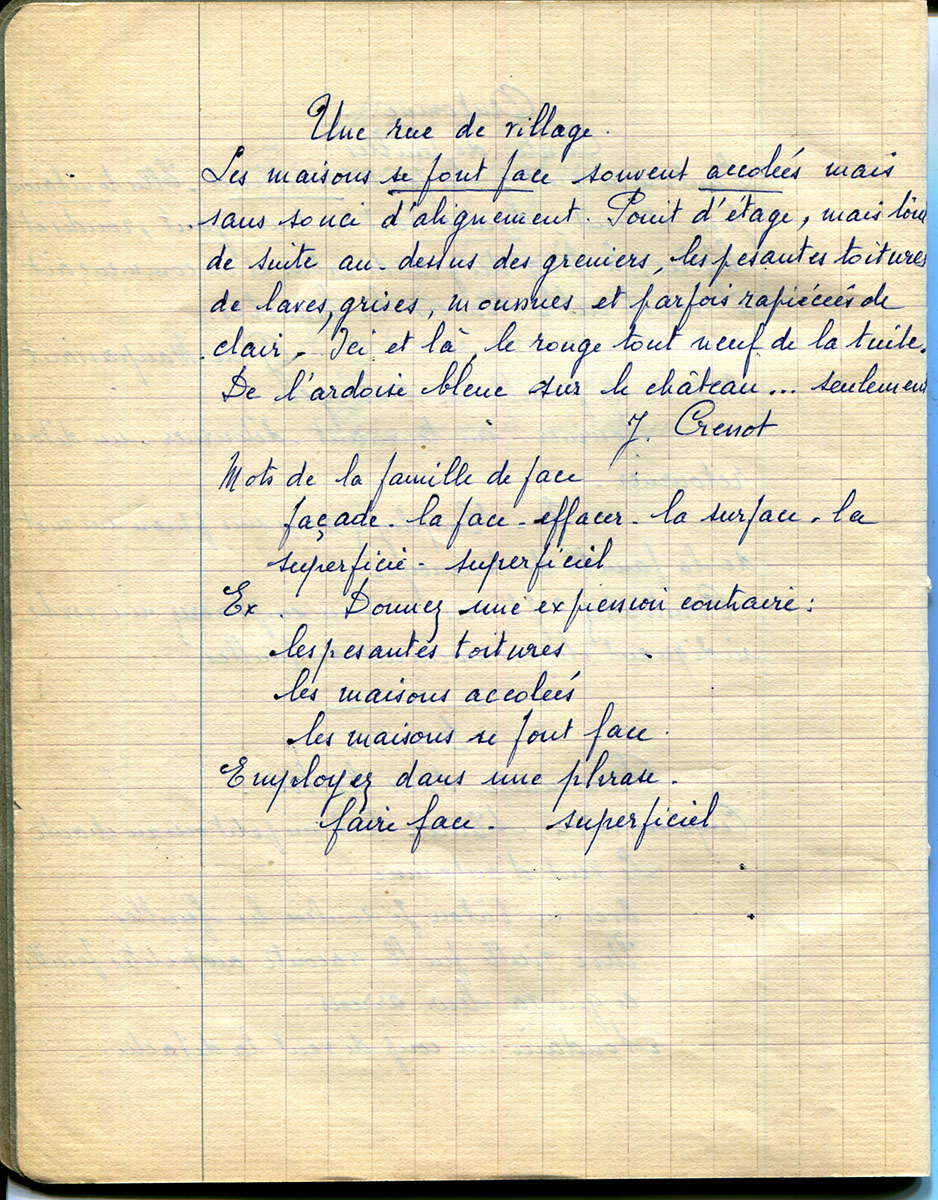 Une rue de village.
Les maisons se font face souvent accolées mais
sans souci d'alignement. Point d'étage, mais tout
de suite au-dessus des greniers, les pesantes toitures
de laves, grises, moussues et parfois rapiécées de
clair. Ici et là, le rouge tout neuf de la tuile.
De l'ardoise bleue sur le château... seulement
J. Cressot
Mots de la famille de face
façade - la face - effacer - la surface - la
superficie - superficiel
Ex. Donnez une expression contraire :
les pesantes toitures
les maisons accolées
les maisons se font face.
Employez dans une phrase.
faire face - superficiel